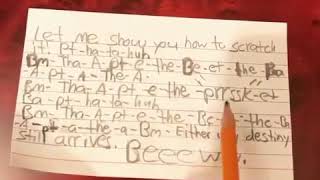 Let me show you how to scratch
it! pt-ha-ta-huh
Bm-Tha-A-pt-e-the-Be-et-the-Ba
-A-pt-a-The-A-
Bm-Tha-A-pt-e-the-prrssk-et
Ba-pt-ha-ta-huh
Bm-Tha-A-pt-e-the-Be-et-the-Ba
-A-pt-a-the-a-Bm-Either way destiny
still arrives. Beeeww.